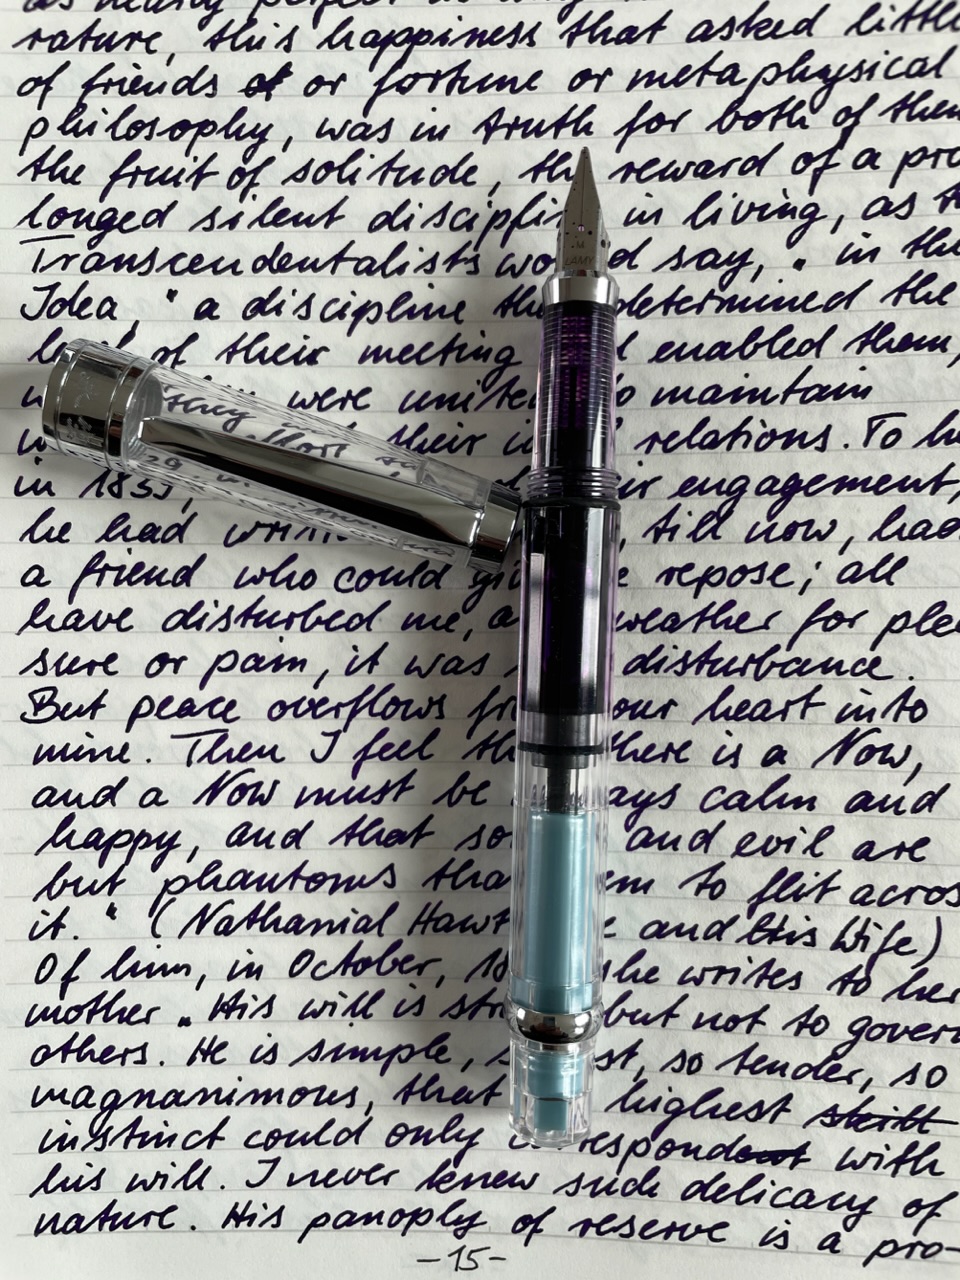 as nearly perfect as
rature, this happiness that asked little
of friends or or fortune or metaphysical
philosophy, was in truth for both of them
the fruit of solitude, the reward of a pro
longed silent discipli in living, as
Transcendentalists wo d say, " in the
Idea, " a discipline tha determined the
of their meeting d enabled them,
were unite to maintain
their relations. To he
in 1839, ir engagement,
he had writ , till now, had
a friend who could giv e repose; all
have disturbed me, a weather for plea
sure or pain, it was disturbance.
But peace overflows fr our heart into
mine. Then I feel th there is a Now,
and a Now must be ays calm and
happy, and that so and evil are
but phantoms tha em to flit across
it. " (Nathanial Hawt e and His Wife)
Of him, in October, 18 she writes to her
mother „His will is str but not to govern
others. He is simple, s st, so tender, so
magnanimous, that highest skill
instinct could only c respondent with
his will. I never knew such delicacy of
nature. His panoply of reserve is a pro-
-15-
M
LAMY